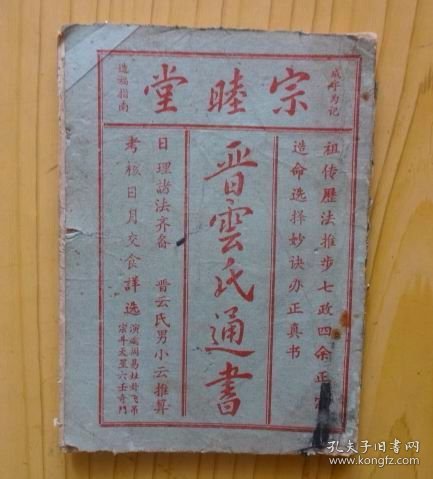 宗睦堂
咸丰为记
造福指南
祖传歷法推步七政四余正宗
造命选择妙诀亦正真书
晋雲氏通書
日理諸法齐备 晋云氏男小云推算
考核日月交食詳选
演禽周易灶卦飞吊
宗斗天星六壬奇門
孔夫子旧书网
www.kongfz.com